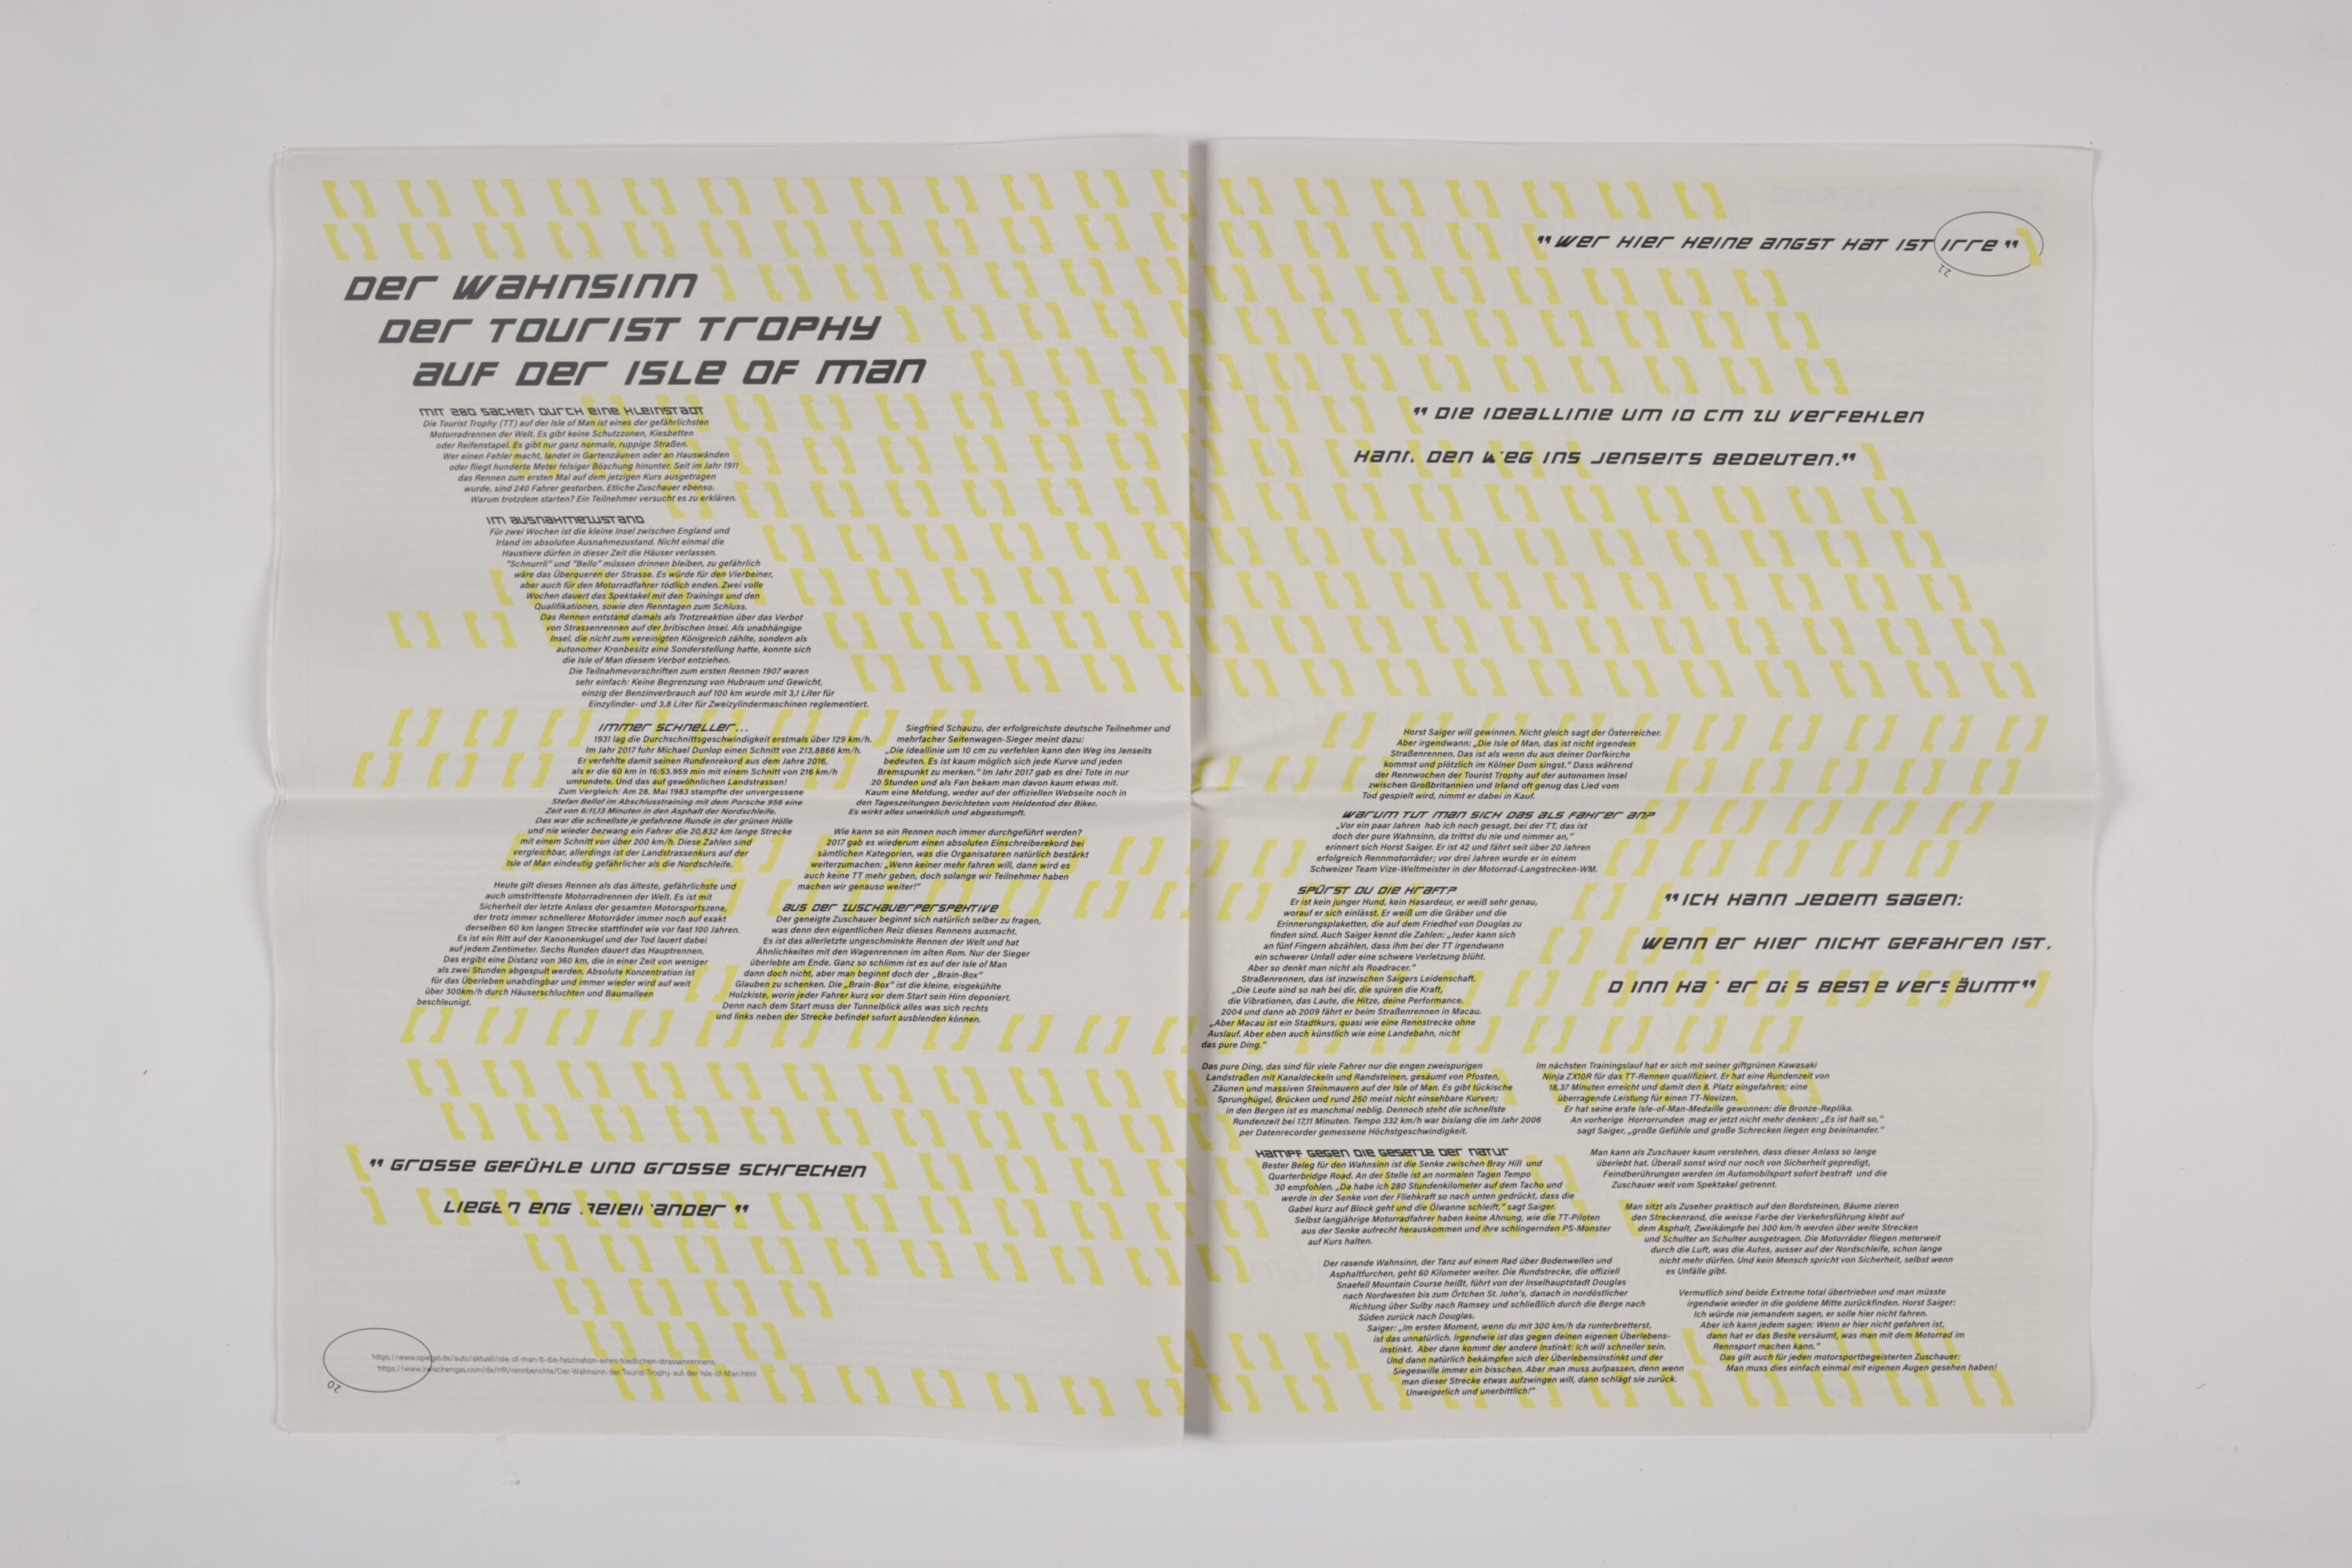 Der Wahnsinn
der Tourist Trophy
auf der Isle of Man
Mit 280 Sachen durch eine Kleinstadt
Die Tourist Trophy (TT) auf der Isle of Man ist eines der gefährlichsten
Motorradrennen der Welt. Es gibt keine Schutzzonen, Kiesbetten
oder Reifenstapel. Es gibt nur ganz normale, ruppige Straßen.
Wer einen Fehler macht, landet in Gartenzäunen oder an Hauswänden
oder fliegt hunderte Meter felsiger Böschung hinunter. Seit im Jahr 1911
das Rennen zum ersten Mal auf dem jetzigen Kurs ausgetragen
wurde, sind 240 Fahrer gestorben. Etliche Zuschauer ebenso.
Warum trotzdem starten? Ein Teilnehmer versucht es zu erklären.
Im Ausnahmezustand
Für zwei Wochen ist die kleine Insel zwischen England und
Irland im absoluten Ausnahmezustand. Nicht einmal die
Haustiere dürfen in dieser Zeit die Häuser verlassen.
"Schnurrli" und "Bello" müssen drinnen bleiben, zu gefährlich
wäre das Überqueren der Strasse. Es würde für den Vierbeiner,
aber auch für den Motorradfahrer tödlich enden. Zwei volle
Wochen dauert das Spektakel mit den Trainings und den
Qualifikationen, sowie den Renntagen zum Schluss.
Das Rennen entstand damals als Trotzreaktion über das Verbot
von Strassenrennen auf der britischen Insel. Als unabhängige
Insel, die nicht zum vereinigten Königreich zählte, sondern als
autonomer Kronbesitz eine Sonderstellung hatte, konnte sich
die Isle of Man diesem Verbot entziehen.
Die Teilnahmevorschriften zum ersten Rennen 1907 waren
sehr einfach: Keine Begrenzung von Hubraum und Gewicht,
einzig der Benzinverbrauch auf 100 km wurde mit 3,1 Liter für
Einzylinder- und 3,8 Liter für Zweizylindermaschinen reglementiert.
Immer schneller...
1931 lag die Durchschnittsgeschwindigkeit erstmals über 129 km/h.
Im Jahr 2017 fuhr Michael Dunlop einen Schnitt von 213,8866 km/h.
Er verfehlte damit seinen Rundenrekord aus dem Jahre 2016,
als er die 60 km in 16:53.959 min mit einem Schnitt von 216 km/h
umrundete. Und das auf gewöhnlichen Landstrassen!
Zum Vergleich: Am 28. Mai 1983 stampfte der unvergessene
Stefan Bellof im Abschlusstraining mit dem Porsche 956 eine
Zeit von 6:11,13 Minuten in den Asphalt der Nordschleife.
Das war die schnellste je gefahrene Runde in der grünen Hölle
und nie wieder bezwang ein Fahrer die 20,832 km lange Strecke
mit einem Schnitt von über 200 km/h. Diese Zahlen sind
vergleichbar, allerdings ist der Landstrassenkurs auf der
Isle of Man eindeutig gefährlicher als die Nordschleife.
Heute gilt dieses Rennen als das älteste, gefährlichste und
auch umstrittenste Motorradrennen der Welt. Es ist mit
Sicherheit der letzte Anlass der gesamten Motorsportszene,
der trotz immer schnellerer Motorräder immer noch auf exakt
derselben 60 km langen Strecke stattfindet wie vor fast 100 Jahren.
Es ist ein Ritt auf der Kanonenkugel und der Tod lauert dabei
auf jedem Zentimeter. Sechs Runden dauert das Hauptrennen.
Das ergibt eine Distanz von 360 km, die in einer Zeit von weniger
als zwei Stunden abgespult werden. Absolute Konzentration ist
für das Überleben unabdingbar und immer wieder wird auf weit
über 300km/h durch Häuserschluchten und Baumalleen
beschleunigt.
Siegfried Schauzu, der erfolgreichste deutsche Teilnehmer und
mehrfacher Seitenwagen-Sieger meint dazu:
„Die Ideallinie um 10 cm zu verfehlen kann den Weg ins Jenseits
bedeuten. Es ist kaum möglich sich jede Kurve und jeden
Bremspunkt zu merken." Im Jahr 2017 gab es drei Tote in nur
20 Stunden und als Fan bekam man davon kaum etwas mit.
Kaum eine Meldung, weder auf der offiziellen Webseite noch in
den Tageszeitungen berichteten vom Heldentod der Biker.
Es wirkt alles unwirklich und abgestumpft.
Wie kann so ein Rennen noch immer durchgeführt werden?
2017 gab es wiederum einen absoluten Einschreiberekord bei
sämtlichen Kategorien, was die Organisatoren natürlich bestärkt
weiterzumachen: „Wenn keiner mehr fahren will, dann wird es
auch keine TT mehr geben, doch solange wir Teilnehmer haben
machen wir genauso weiter!"
Aus der Zuschauerperspektive
Der geneigte Zuschauer beginnt sich natürlich selber zu fragen,
was denn den eigentlichen Reiz dieses Rennens ausmacht.
Es ist das allerletzte ungeschminkte Rennen der Welt und hat
Ähnlichkeiten mit den Wagenrennen im alten Rom. Nur der Sieger
überlebte am Ende. Ganz so schlimm ist es auf der Isle of Man
dann doch nicht, aber man beginnt doch der „Brain-Box"
Glauben zu schenken. Die „Brain-Box" ist die kleine, eisgekühlte
Holzkiste, worin jeder Fahrer kurz vor dem Start sein Hirn deponiert.
Denn nach dem Start muss der Tunnelblick alles was sich rechts
und links neben der Strecke befindet sofort ausblenden können.
" Grosse Gefühle und grosse Schrecken
liegen eng beieinander "
https://www.spiegel.de/auto/aktuell/isle-of-man-tt-die-faszination-eines-toedlichen-strassenrennens
https://www.zwischengas.com/de/HR/rennberichte/Der-Wahnsinn-der-Tourist-Trophy-auf-der-Isle-of-Man.html
20
" Wer hier keine Angst hat ist irre "
21
" Die Ideallinie um 10 cm zu verfehlen
kann den Weg ins Jenseits bedeuten."
Horst Saiger will gewinnen. Nicht gleich sagt der Österreicher.
Aber irgendwann: „Die Isle of Man, das ist nicht irgendein
Straßenrennen. Das ist als wenn du aus deiner Dorfkirche
kommst und plötzlich im Kölner Dom singst." Dass während
der Rennwochen der Tourist Trophy auf der autonomen Insel
zwischen Großbritannien und Irland oft genug das Lied vom
Tod gespielt wird, nimmt er dabei in Kauf.
Warum tut man sich das als Fahrer an?
„Vor ein paar Jahren hab ich noch gesagt, bei der TT, das ist
doch der pure Wahnsinn, da trittst du nie und nimmer an,"
erinnert sich Horst Saiger. Er ist 42 und fährt seit über 20 Jahren
erfolgreich Rennmotorräder; vor drei Jahren wurde er in einem
Schweizer Team Vize-Weltmeister in der Motorrad-Langstrecken-WM.
Spürst du die Kraft?
Er ist kein junger Hund, kein Hasardeur, er weiß sehr genau,
worauf er sich einlässt. Er weiß um die Gräber und die
Erinnerungsplaketten, die auf dem Friedhof von Douglas zu
finden sind. Auch Saiger kennt die Zahlen: „Jeder kann sich
an fünf Fingern abzählen, dass ihm bei der TT irgendwann
ein schwerer Unfall oder eine schwere Verletzung blüht.
Aber so denkt man nicht als Roadracer."
Straßenrennen, das ist inzwischen Saigers Leidenschaft.
„Die Leute sind so nah bei dir, die spüren die Kraft,
die Vibrationen, das Laute, die Hitze, deine Performance.
2004 und dann ab 2009 fährt er beim Straßenrennen in Macau.
„Aber Macau ist ein Stadtkurs, quasi wie eine Rennstrecke ohne
Auslauf. Aber eben auch künstlich wie eine Landebahn, nicht
das pure Ding."
"Ich kann jedem sagen:
Wenn er hier nicht gefahren ist,
dann hat er das Beste versäumt"
Das pure Ding, das sind für viele Fahrer nur die engen zweispurigen
Landstraßen mit Kanaldeckeln und Randsteinen, gesäumt von Pfosten,
Zäunen und massiven Steinmauern auf der Isle of Man. Es gibt tückische
Sprunghügel, Brücken und rund 250 meist nicht einsehbare Kurven;
in den Bergen ist es manchmal neblig. Dennoch steht die schnellste
Rundenzeit bei 17,11 Minuten. Tempo 332 km/h war bislang die im Jahr 2006
per Datenrecorder gemessene Höchstgeschwindigkeit.
Kampf gegen die Gesetze der Natur
Bester Beleg für den Wahnsinn ist die Senke zwischen Bray Hill und
Quarterbridge Road. An der Stelle ist an normalen Tagen Tempo
30 empfohlen. „Da habe ich 280 Stundenkilometer auf dem Tacho und
werde in der Senke von der Fliehkraft so nach unten gedrückt, dass die
Gabel kurz auf Block geht und die Ölwanne schleift," sagt Saiger.
Selbst langjährige Motorradfahrer haben keine Ahnung, wie die TT-Piloten
aus der Senke aufrecht herauskommen und ihre schlingernden PS-Monster
auf Kurs halten.
Der rasende Wahnsinn, der Tanz auf einem Rad über Bodenwellen und
Asphaltfurchen, geht 60 Kilometer weiter. Die Rundstrecke, die offiziell
Snaefell Mountain Course heißt, führt von der Inselhauptstadt Douglas
nach Nordwesten bis zum Örtchen St. John's, danach in nordöstlicher
Richtung über Sulby nach Ramsey und schließlich durch die Berge nach
Süden zurück nach Douglas.
Saiger: „Im ersten Moment, wenn du mit 300 km/h da runterbretterst,
ist das unnatürlich. Irgendwie ist das gegen deinen eigenen Überlebens-
instinkt. Aber dann kommt der andere Instinkt: Ich will schneller sein.
Und dann natürlich bekämpfen sich der Überlebensinstinkt und der
Siegeswille immer ein bisschen. Aber man muss aufpassen, denn wenn
man dieser Strecke etwas aufzwingen will, dann schlägt sie zurück.
Unweigerlich und unerbittlich!"
Im nächsten Trainingslauf hat er sich mit seiner giftgrünen Kawasaki
Ninja ZX10R für das TT-Rennen qualifiziert. Er hat eine Rundenzeit von
18,37 Minuten erreicht und damit den 8. Platz eingefahren; eine
überragende Leistung für einen TT-Novizen.
Er hat seine erste Isle-of-Man-Medaille gewonnen: die Bronze-Replika.
An vorherige Horrorrunden mag er jetzt nicht mehr denken: „Es ist halt so,"
sagt Saiger, „große Gefühle und große Schrecken liegen eng beieinander."
Man kann als Zuschauer kaum verstehen, dass dieser Anlass so lange
überlebt hat. Überall sonst wird nur noch von Sicherheit gepredigt,
Feindberührungen werden im Automobilsport sofort bestraft und die
Zuschauer weit vom Spektakel getrennt.
Man sitzt als Zuseher praktisch auf den Bordsteinen, Bäume zieren
den Streckenrand, die weisse Farbe der Verkehrsführung klebt auf
dem Asphalt, Zweikämpfe bei 300 km/h werden über weite Strecken
und Schulter an Schulter ausgetragen. Die Motorräder fliegen meterweit
durch die Luft, was die Autos, ausser auf der Nordschleife, schon lange
nicht mehr dürfen. Und kein Mensch spricht von Sicherheit, selbst wenn
es Unfälle gibt.
Vermutlich sind beide Extreme total übertrieben und man müsste
irgendwie wieder in die goldene Mitte zurückfinden. Horst Saiger:
Ich würde nie jemandem sagen, er solle hier nicht fahren.
Aber ich kann jedem sagen: Wenn er hier nicht gefahren ist,
dann hat er das Beste versäumt, was man mit dem Motorrad im
Rennsport machen kann."
Das gilt auch für jeden motorsportbegeisterten Zuschauer:
Man muss dies einfach einmal mit eigenen Augen gesehen haben!